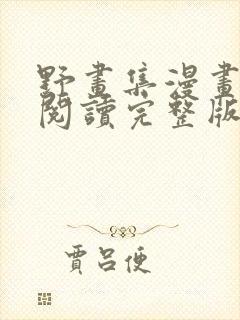 野畫集漫畫
閱讀完整版
賈呂便